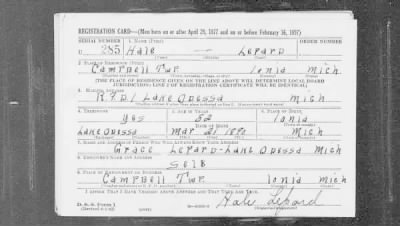 REGISTRATION CARD—(Men born on or after April 28, 1877 and on or before February 16, 1897)
SERIAL NUMBER 1. NAME (Print) ORDER NUMBER
U 285 Hale — Lepard
2. PLACE OF RESIDENCE (Print)
Campbell Twp. Ionia Mich
[THE PLACE OF RESIDENCE GIVEN ON THE LINE ABOVE WILL DETERMINE LOCAL BOARD
JURISDICTION; LINE 2 OF REGISTRATION CERTIFICATE WILL BE IDENTICAL]
3. MAILING ADDRESS
R.F.D.1 Lake Odessa Mich
4. TELEPHONE 5. AGE IN YEARS 6. PLACE OF BIRTH
Yes 52 Ionia
DATE OF BIRTH
Lake Odessa Mar 21 1890 Mich
7. NAME AND ADDRESS OF PERSON WHO WILL ALWAYS KNOW YOUR ADDRESS
Grace Lepard-Lake Odessa Mich
8. EMPLOYER'S NAME AND ADDRESS
Self
9. PLACE OF EMPLOYMENT OR BUSINESS
Campbell Twp. Ionia Mich
I AFFIRM THAT I HAVE VERIFIED ABOVE ANSWERS AND THAT THEY ARE TRUE.
D. S. S. Form 1
Hale Lepard